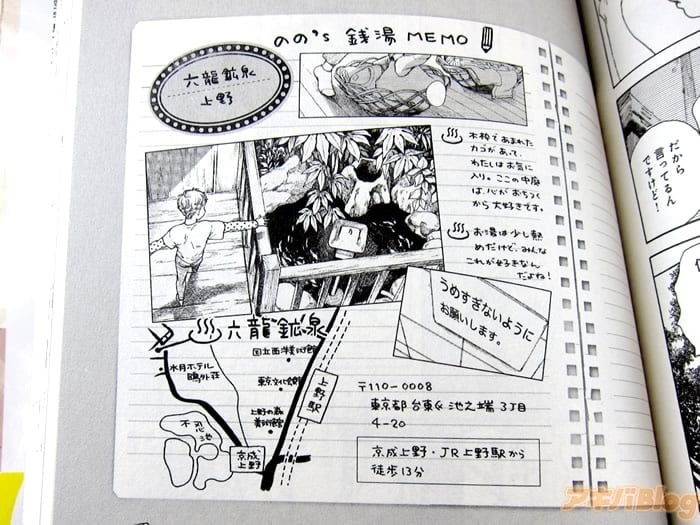 のの's 銭湯 MEMO
六龍鉱泉
上野
木枝であまれた
カゴがあって、
わたしはお気に
入り。ここの中庭
は、心がおちつく
から大好きです。
お湯は少し熱
めだけど、みんな
これが好きなん
だよね!
うめすぎないように
お願いします。
六龍鉱泉
国立西洋美術館
水月ホテル
鴎外荘
東京文化会館
上野の森
美術館
上野駅
不忍池
京成
上野
〒110-0008
東京都 台東区 池之端 3丁目
4-20
京成上野・JR上野駅から
徒歩13分
だから
言ってるん
ですけど!
アキバBlog